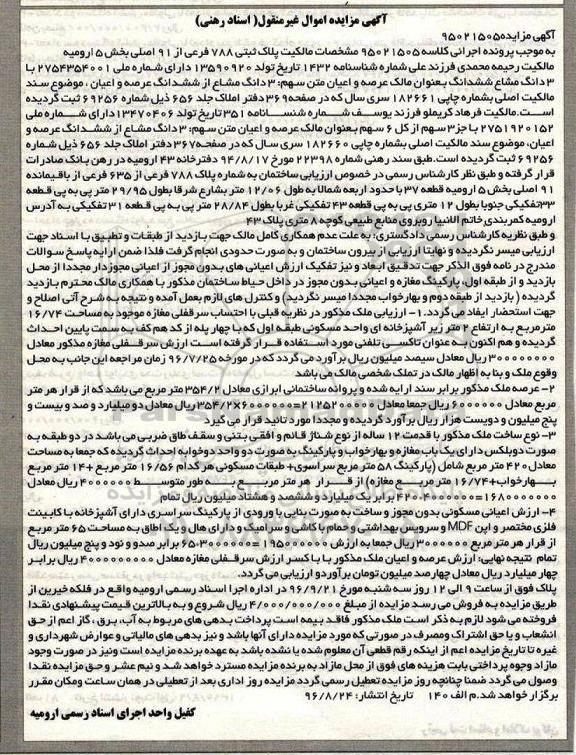 آگهی مزایده اموال غیرمنقول( اسناد رهنی)
آگهی مزایده۹۵۰۲۱۵۰۵
به موجب پرونده اجرائی کلاسه ۹۵۰۲۱۵۰۵ مشخصات مالکیت پلاک ثبتی ۷۸۸ فرعی از ۹۱ اصلی بخش ۵ ارومیه
مالکیت رحیمه محمدی فرزند علی شماره شناسنامه ۱۴۳۲ تاریخ تولد ۱۳۵۹۰۹۲۰ دارای شماره ملی ۲۷۵۴۳۵۴۰۰۱ با
۳ دانگ مشاع ششدانگ بعنوان مالک عرصه و اعیان متن سهم: ۳ دانگ مشاع از ششدانگ عرصه و اعیان ، موضوع سند
مالکیت اصلی بشماره چاپی ۱۸۲۶۶۱ سری سال که در صفحه۳۶۹ دفتر املاک جلد ۶۵۶ ذیل شماره ۶۹۲۵۶ ثبت گردیده
است.مالکیت فرهاد کریملو فرزند یوسف شماره شناسنامه ۳۵۱ تاریخ تولد ۱۳۴۷۰۴۰۶ دارای شماره ملی
۲۷۵۱۹۲۰۱۵۲ با جز۳ سهم از کل ۶ سهم بعنوان مالک عرصه و اعیان متن سهم: ۳ دانگ مشاع از ششدانگ عرصه و
اعیان، موضوع سند مالکیت اصلی بشماره چاپی ۱۸۲۶۶۰ سری سال که در صفحه۳۶۷ دفتر املاک جلد ۶۵۶ ذیل شماره
۶۹۲۵۶ ثبت گردیده است.طبق سند رهنی شماره ۲۲۳۹۸ مورخ ۹۴/۸/۱۷ دفترخانه ۴۳ ارومیه در رهن بانک صادرات
قرار گرفته و طبق نظر کارشناس رسمی در خصوص ارزیابی ساختمان به شماره پلاک ۷۸۸ فرعی از ۶۳۵ فرعی از باقیمانده
۹۱ اصلی بخش ۵ ارومیه قطعه ۳۷ با حدود اربعه شمالا به طول ۱۲/۰۶ متر بشارع شرقا بطول ۲۹/۹۵ متر پی به پی قطعه
۳۳تفکیکی جنوبا بطول ۱۲ متری پی به پی قطعه ۴۳ تفکیکی غربا بطول ۲۸/۸۴ متر پی به پی قطعه ۳۱ تفکیکی به آدرس
ارومیه کمربندی خاتم الانبیا روبروی منابع طبیعی کوچه ۸ متری پلاک ۴۳
و طبق نظریه کارشناس رسمی دادگستری: به علت عدم همکاری کامل مالک جهت بازدید از طبقات و تطبیق با اسناد جهت
ارزیابی میسر نگردیده و نهایتا ارزیابی از بیرون ساختمان و به صورت حدودی انجام گرفت فلذا ضمن ارایه پاسخ سوالات
مندرج در نامه فوق الذکر جهت تدقیق ابعاد و نیز تفکیک ارزش اعیانی های بدون مجوز از اعیانی مجوزدار مجددا از محل
بازدید و از طبقه اول، پارکینگ مغازه و اعیانی بدون مجوز در داخل حیاط ساختمان مذکور با همکاری مالک محترم بازدید
گردیده ( بازدید از طبقه دوم و بهارخواب مجددا میسر نگردید) و کنترل های لازم بعمل آمده و نتیجه به شرح آتی اصلاح و
جهت استحضار ایفاد می گردد. ۱- ارزیابی ملک مذکور در نظریه قبلی با احتساب سرقفلی مغازه موجود به مساحت ۱۶/۷۴
مترمربع به ارتفاع ۲ متر زیر آشپزخانه ای واحد مسکونی طبقه اول که با چهار پله از کد هم کف به سمت پایین احداث
گردیده و هم اکنون به عنوان تاکسی تلفنی مورد استفاده قرار گرفته است ارزش سرقفلی مغازه مذکور معادل
۳۰۰۰۰۰۰۰۰ ریال معادل سیصد میلیون ریال برآورد می گردد که در مورخه ۹۶/۷/۲۵ زمان مراجعه این جانب به محل
وقوع ملک و بنا به اظهار مالک در تملک شخصی مالک می باشد
۲- عرصه ملک مذکور برابر سند ارایه شده و پروانه ساختمانی ابرازی معادل ۳۵۴/۲ متر مربع می باشد که از قرار هر متر
مربع معادل ۶۰۰۰۰۰۰ ریال جمعا معادل ۲۱۲۵۲۰۰۰۰۰=۶۰۰۰۰۰۰×۳۵۴/۲ ریال معادل دو میلیارد و صد و بیست و
پنج میلیون و دویست هزار ریال برآورد گردیده و مجددا مورد تائید قرار می گیرد
۳- نوع ساخت ملک مذکور با قدمت ۱۲ ساله از نوع شناژ قائم و افقی بتنی و سقف طاق ضربی می باشد در دو طبقه به
صورت دوبلکس دارای یک باب مغازه و بهارخواب و پارکینگ به صورت دو واحد دوخوابه احداث گردیده که جمعا به مساحت
معادل ۴۲۰ متر مربع شامل (پارکینگ ۵۸ متر مربع سراسری+ طبقات مسکونی هر کدام ۱۶/۵۶ متر مربع +۱۴ متر مربع
بهارخواب+۱۶/۷۴ متر مربع مغازه) از قرار هر متر مربع به طور متوسط ۴۰۰۰۰۰۰ ریال معادل
۱۶۸۰۰۰۰۰۰۰=۴۲۰۰۴۰۰۰۰۰۰ برابر یک میلیارد و ششصد و هشتاد میلیون ریال تمام
۴- ارزش اعیانی مسکونی بدون مجوز و ساخت به صورت بنایی با ورودی از پارکینگ سراسری دارای آشپزخانه با کابینت
فلزی مختصر و اپن MDF و سرویس بهداشتی و حمام با کاشی و سرامیک و دارای هال و یک اطاق به مساحت ۶۵ متر مربع
از قرار هر متر مربع ۳۰۰۰۰۰۰ ریال جمعا به ارزش ۱۹۵۰۰۰۰۰۰=۶۵۰۳۰۰۰۰۰۰ برابر صدو و نود و پنج میلیون ریال
تمام نتیجه نهایی: ارزش عرصه و اعیان ملک مذکور با با کسر ارزش سرقفلی مغازه معادل ۴۰۰۰۰۰۰۰۰۰ ریال برابر
چهار میلیارد ریال معادل چهارصد میلیون تومان برآورد و ارزیابی می گردد.
پلاک فوق از ساعت ۹ الی ۱۲ روز سه شنبه مورخ ۹۶/۹/۲۱ در اداره اجرا اسناد رسمی ارومیه واقع در فلکه خیرین از
طریق مزایده به فروش می رسد مزایده از مبلغ ۴/۰۰۰/۰۰۰/۰۰۰ ریال شروع و به بالاترین قیمت پیشنهادی نقدا
فروخته می شود لازم به ذکر است ملک مذکور فاقد بیمه است پرداخت بدهی های مربوط به آب، برق ، گاز اعم از حق
انشعاب و یا حق اشتراک ومصرف در صورتی که مورد مزایده دارای آنها باشد و نیز بدهی های مالیاتی و عوارض شهرداری و
غیره تا تاریخ مزایده اعم از اینکه رقم قطعی آن معلوم شده یا نشده باشد به عهده برنده مزایده است ونیز در صورت وجود
مازاد وجوه پرداختی بابت هزینه های فوق از محل مازاد به برنده مزایده مسترد خواهد شد و نیم عشر و حق مزایده نقدا
وصول می گردد ضمنا چنانچه روز مزایده تعطیل رسمی گردد مزایده روز اداری بعد از تعطیلی در همان ساعت ومکان مقرر
برگزار خواهد شد.م الف ۱۴۰ تاریخ انتشار: ۹۶/۸/۲۴
کفیل واحد اجرای اسناد رسمی ارومیه